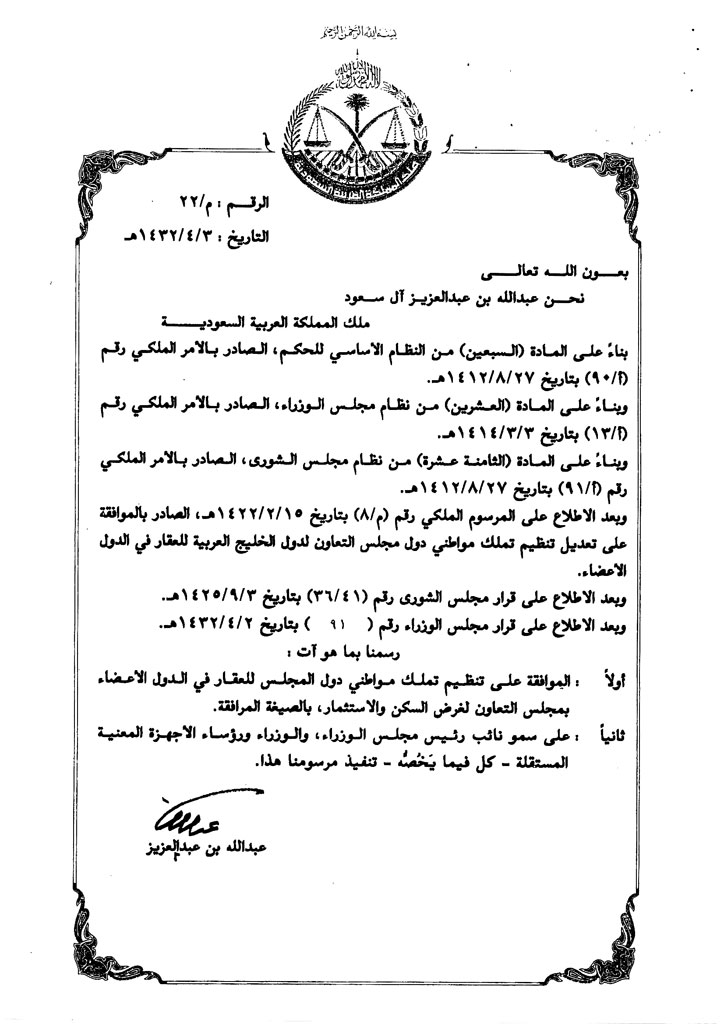 بسم الله الرحمن الرحيم
لا إله إلا الله محمد رسول الله
المملكة العربية السعودية
الرقـــم : م/٢٢
التاريخ : ١٤٣٢/٤/٣هـ
بعـــون اللـــه تعالـــى
نحـــن عبدالله بن عبدالعزيز آل سعود
ملك المملكة العربية السعوديـــــة
بناءً على المادة (السبعين) من النظام الاساسي للحكم، الصادر بالامر الملكي رقم
(أ/٩٠) بتاريخ ١٤١٢/٨/٢٧هـ.
وبناءً على المادة (العشرين) من نظام مجلس الوزراء، الصادر بالامر الملكي رقم
(أ/١٣) بتاريخ ١٤١٤/٣/٣هـ.
وبناءً على المادة (الثامنة عشرة) من نظام مجلس الشورى، الصادر بالامر الملكي
رقم (أ/٩١) بتاريخ ١٤١٢/٨/٢٧هـ.
وبعد الاطلاع على المرسوم الملكي رقم (م/٨) بتاريخ ١٤٢٢/٢/١٥هـ، الصادر بالموافقة
على تعديل تنظيم تملك مواطني دول مجلس التعاون لدول الخليج العربية للعقار في الدول
الاعضاء.
وبعد الاطلاع على قرار مجلس الشورى رقم (٣٦/٤١) بتاريخ ١٤٢٥/٩/٣هـ.
وبعد الاطلاع على قرار مجلس الوزراء رقم ( ٩١ ) بتاريخ ١٤٣٢/٤/٢هـ.
رسمنا بما هو آت :
أولاً : الموافقة على تنظيم تملك مواطني دول المجلس للعقار في الدول الاعضاء
بمجلس التعاون لغرض السكن والاستثمار، بالصيغة المرافقة.
ثانياً : على سمو نائب رئيس مجلس الوزراء، والوزراء ورؤساء الاجهزة المعنية
المستقلة - كل فيما يَخُصُّه - تنفيذ مرسومنا هذا.
عبدالله بن عبدالعزيز